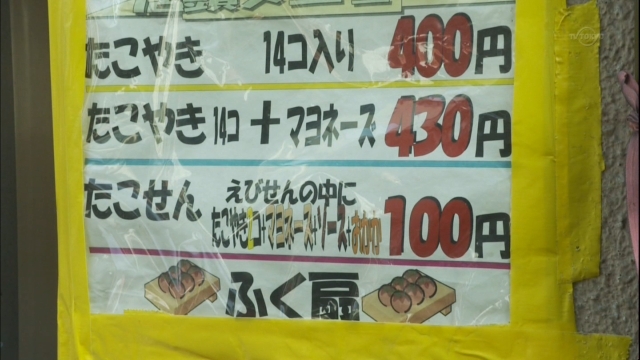 たこやき 14コ入り 400円
たこやき 14コ + マヨネーズ 430円
たこせん えびせんの中に 100円
たこやき2コ+マヨネーズ+ソース+おかか
ふく富